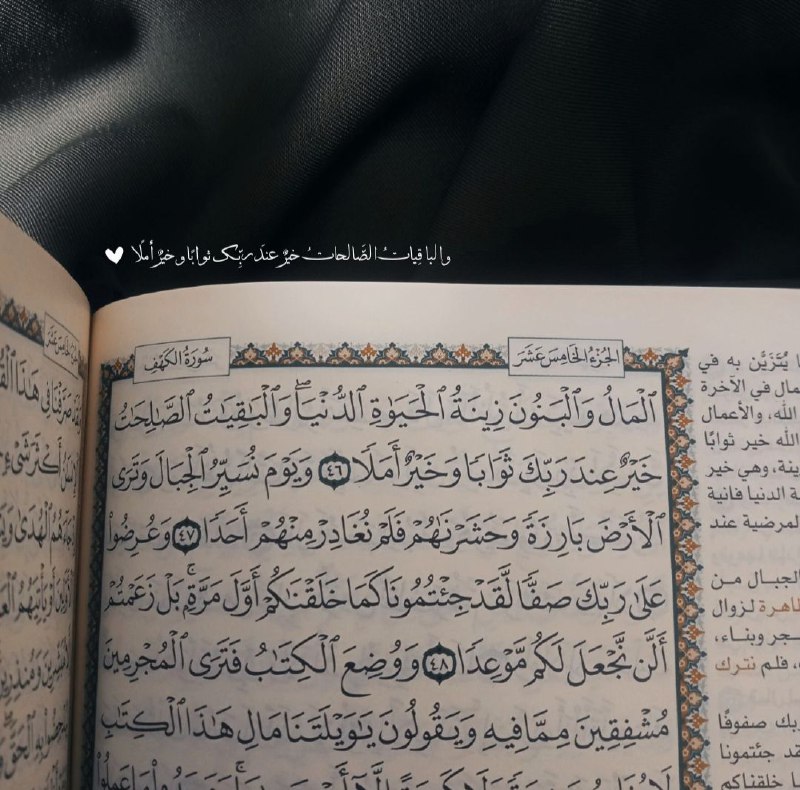 والباقِياتُ الصَّالحاتُ خيرٌ عندَ ربِّكَ ثوابًا وخيرٌ أملًا
الجُزْءُ الخَامِسَ عَشَرَ
سُورَةُ الكَهْفِ
ٱلْمَالُ وَٱلْبَنُونَ زِينَةُ ٱلْحَيَوٰةِ ٱلدُّنْيَاۖ وَٱلْبَٰقِيَٰتُ ٱلصَّٰلِحَٰتُ
خَيْرٌ عِندَ رَبِّكَ ثَوَابًا وَخَيْرٌ أَمَلًا ٤٦ وَيَوْمَ نُسَيِّرُ ٱلْجِبَالَ وَتَرَى
ٱلْأَرْضَ بَارِزَةً وَحَشَرْنَٰهُمْ فَلَمْ نُغَادِرْ مِنْهُمْ أَحَدًا ٤٧ وَعُرِضُوا۟
عَلَىٰ رَبِّكَ صَفًّا لَّقَدْ جِئْتُمُونَا كَمَا خَلَقْنَٰكُمْ أَوَّلَ مَرَّةٍۭۚ بَلْ زَعَمْتُمْ
أَلَّن نَّجْعَلَ لَكُم مَّوْعِدًا ٤٨ وَوُضِعَ ٱلْكِتَٰبُ فَتَرَى ٱلْمُجْرِمِينَ
مُشْفِقِينَ مِمَّا فِيهِ وَيَقُولُونَ يَٰوَيْلَتَنَا مَالِ هَٰذَا ٱلْكِتَٰبِ
يُتَزَيَّن به في
مال في الآخرة
الله، والأعمال
الله خير ثوابًا
ينة، وهي خير
ة الدنيا فانية
لمرضية عند
لجبال من
ظاهرة لزوال
جر وبناء،
، فلم نترك
بك صفوفًا
قد جئتمونا
خلقناكم